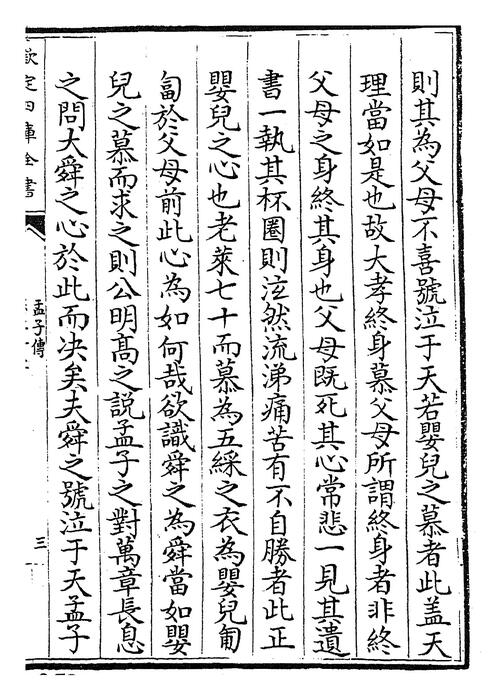 則其為父母不喜號泣于天若嬰兒之慕者此盖天
理當如是也故大孝終身慕父母所謂終身者非終
父母之身終其身也父母既死其心常悲一見其遺
書一執其杯圈則泫然流涕痛苦有不自勝者此正
嬰兒之心也老萊七十而慕為五綵之衣為嬰兒匍
匐於父母前此心為如何哉欲識舜之為舜當如嬰
兒之慕而求之則公明髙之説孟子之對萬章長息
之問大舜之心於此而决矣夫舜之號泣于天孟子
欽定四庫全書
孟子傳
三